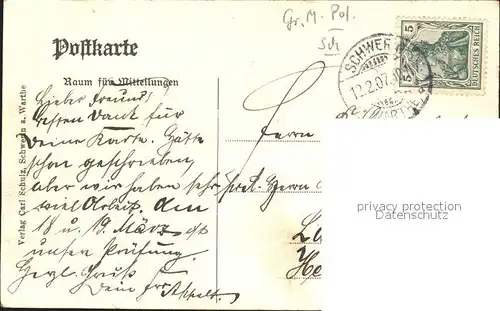 Gr. M. Pol.
Sch
Postkarte
Raum für Mitteilungen
SCHWERIN
12.2.07
(WARTHE)
5
5
DEUTSCHES REICH
Verlag Carl Schulz, Schwerin a. Warthe
Lieber Freund!
Besten Dank für
Deine Karte. Hätte
schon geschrieben,
aber wir haben sehr
viel Arbeit, den
18 u. 19. März ist
unsere Prüfung.
Herzl. Gruß
Dein
Herrn
Herrn
privacy
Datenschutz
protection